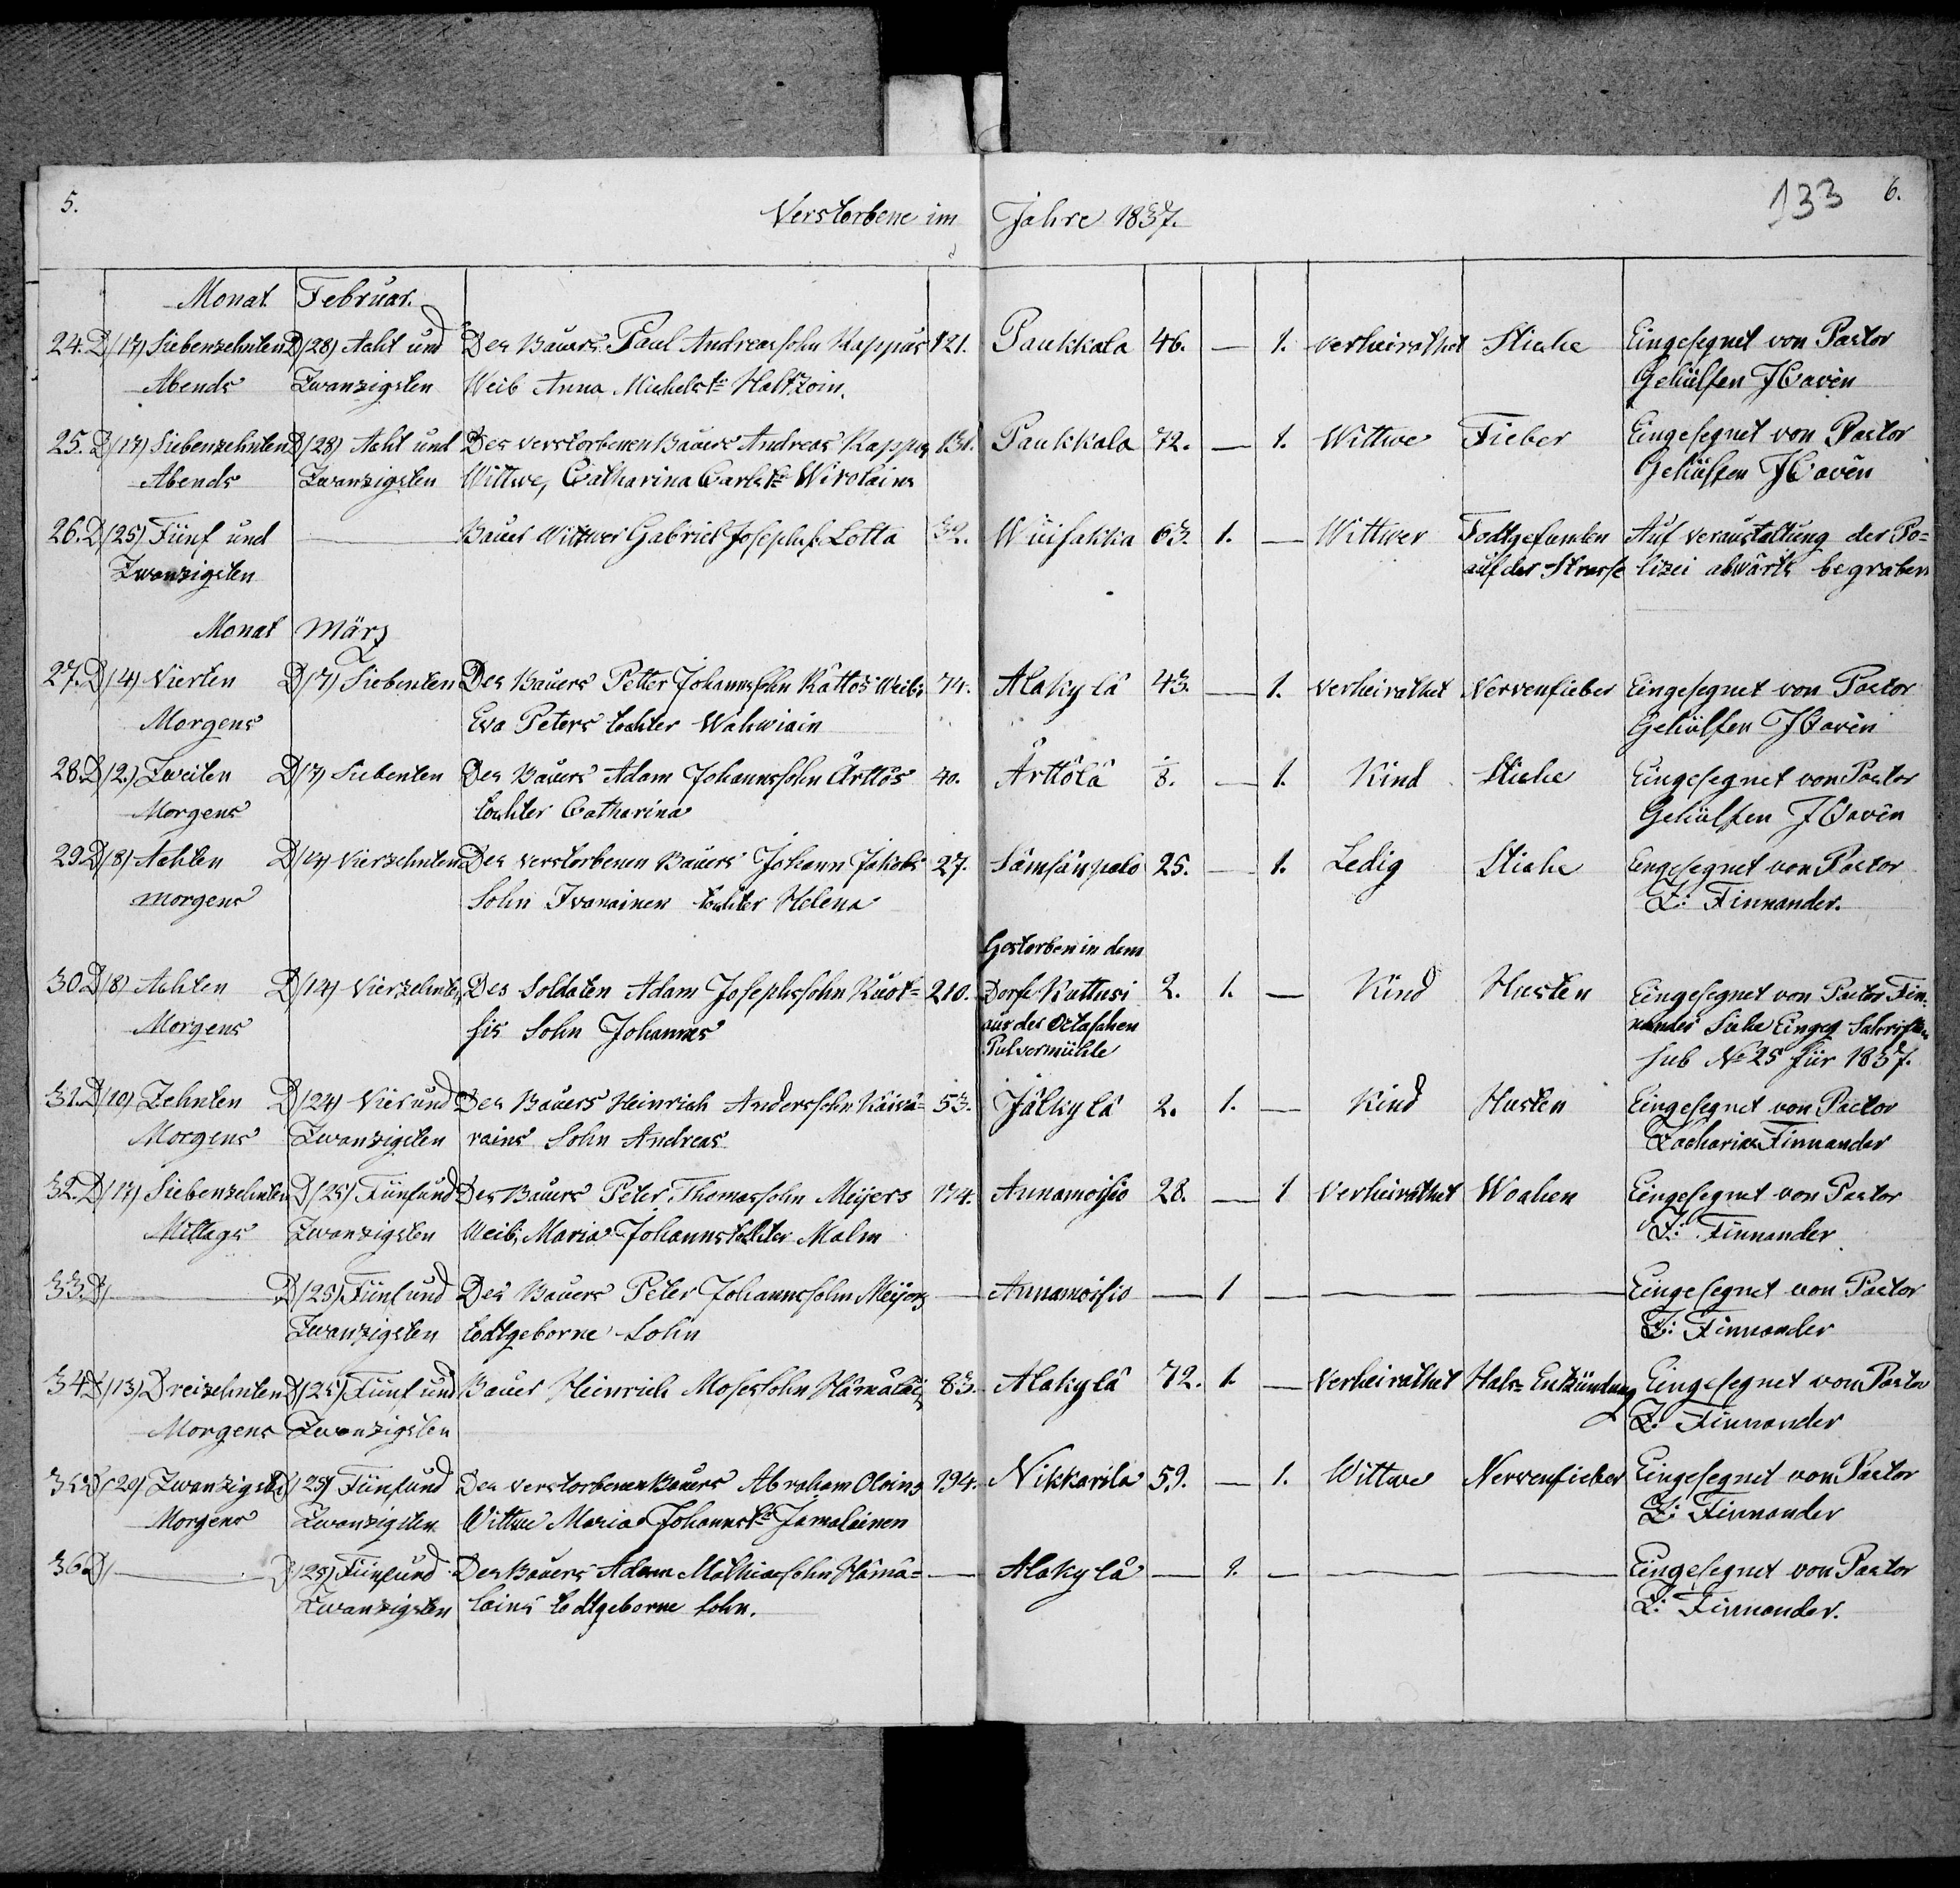 5.
Verstorbene im Jahre 1837.
133
6.
Monat Februar.
24. D (17) Siebenzehnten D (28) Acht und Des Bauers Paul Andreassohn Rappus 121. Paukkala 46. — 1. Verheirathet Stiche Eingesegnet von Pastor
Abends Zwanzigsten Weib Anna Michelst: Halfzoin. Gehülfen JCavén
25. D (17) Siebenzehnten D (28) Acht und Des verstorbenen Bauers Andreas Rappus 131. Paukkala 72. — 1. Wittwe Fieber Eingesegnet von Pastor
Abends Zwanzigsten Wittwe, Catharina Carlst: Wirolains Gehülfen JCavén
26. D (25) Fünf und — Bauer Wittwer Gabriel Josephs. Lotta 32. Wuisakka 63. 1. — Wittwer Todtgefunden Auf veranstaltung der Po=
Zwanzigsten auf der Strasse lizei abwärts begraben
Monat März
27. D (4) Vierten D (7) Siebenten Des Bauers Petter Johannssohn Kättös Weib, 74. Alakylä 43. — 1. verheirathet Nervenfieber Eingesegnet von Pastor
Morgens Eva Peters tochter Wahwiain Gehülfen JCavén
28. D (2.) Zweiten D (7) Siebenten Des Bauers Adam Johannssohn Ärttös 40. Ärttölä 1/8. — 1. Kind Stiche Eingesegnet von Pastor
Morgens tochter Catharina Gehülfen JCavén
29 D (8) Achten D (14) Vierzehnten Des verstorbenen Bauers Johann Jakobs 27. Sämsänpalo 25. — 1. Ledig Stiche Eingesegnet von Pastor
morgens Sohn Ivanainen tochter Helena Z: Finnander.
Gestorben in dem
30 D (8) Achten D (14) Vierzehnten Des Soldaten Adam Josephssohn Ruot= 210. Dorfe Kattusi 2. 1. — Kind Husten Eingesegnet von Pastor Fin=
Morgens sis Sohn Johannes aus der Octaschen nander Siehe Eingeg Schriften
Pulvermühle sub No 25 für 1837.
31. D (10) Zehnten D (24) Vier und Des Bauers Heinrich Anderssohn Käiwä= 53. Jälkylä 2. 1. — Kind Husten Eingesegnet von Pastor
Morgens Zwanzigsten rains Sohn Andreas Zacharias Finnander
32. D (17) Siebenzehnten D (25) Fünfund Des Bauers Peter Thomassohn Meijers 174. Annamoisio 28. — 1 Verheirathet Wochen Eingesegnet von Pastor
Mittags Zwanzigsten Weib, Maria Johannstochter Malm Z: Finnander
33. D — D (25) Fünfund Des Bauers Peter Johannssohn Meijers — Annamoisio — 1 — — — Eingesegnet von Pastor
Zwanzigsten todtgeborne Sohn Z: Finnander
34 D (13) Dreizehnten D (25) Fünf und Bauer Heinrich Mosessohn Hämäläin 83. Alakylä 72. 1. — Verheirathet Hals= Entzündung Eingesegnet von Pastor
Morgens Zwanzigsten Z: Finnander
35 D (20) Zwanzigst D (25) Fünfund Des verstorbenen Bauers Abraham Oloins 194. Nikkarila 59. — 1. Wittwe Nervenfieber Eingesegnet von Pastor
Morgens Zwanzigsten Wittwe Maria Johannst: Jamalainen Z: Finnander
36 D — D (25) Fünfund Des Bauers Adam Mathiassohn Hämä= — Alakylä — 1. — — — Eingesegnet von Pastor
Zwanzigsten lains todtgeborne sohn. Z: Finnander.